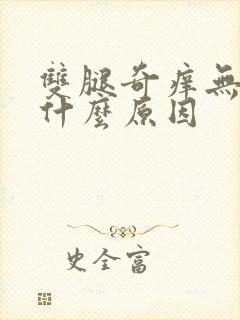 雙腿奇痒無
什麼原因
史全富